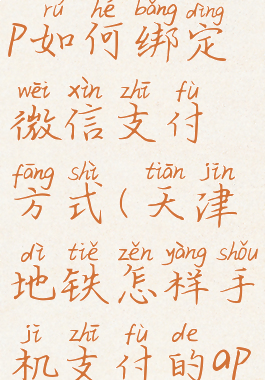 rú hé bǎng dìng
P如何绑定
wēi xìn zhī fù
微信支付
fāng shì tiān jīn
方式(天津
dì tiě zěn yàng shǒu
地铁怎样手
jī zhī fù de
机支付的ap